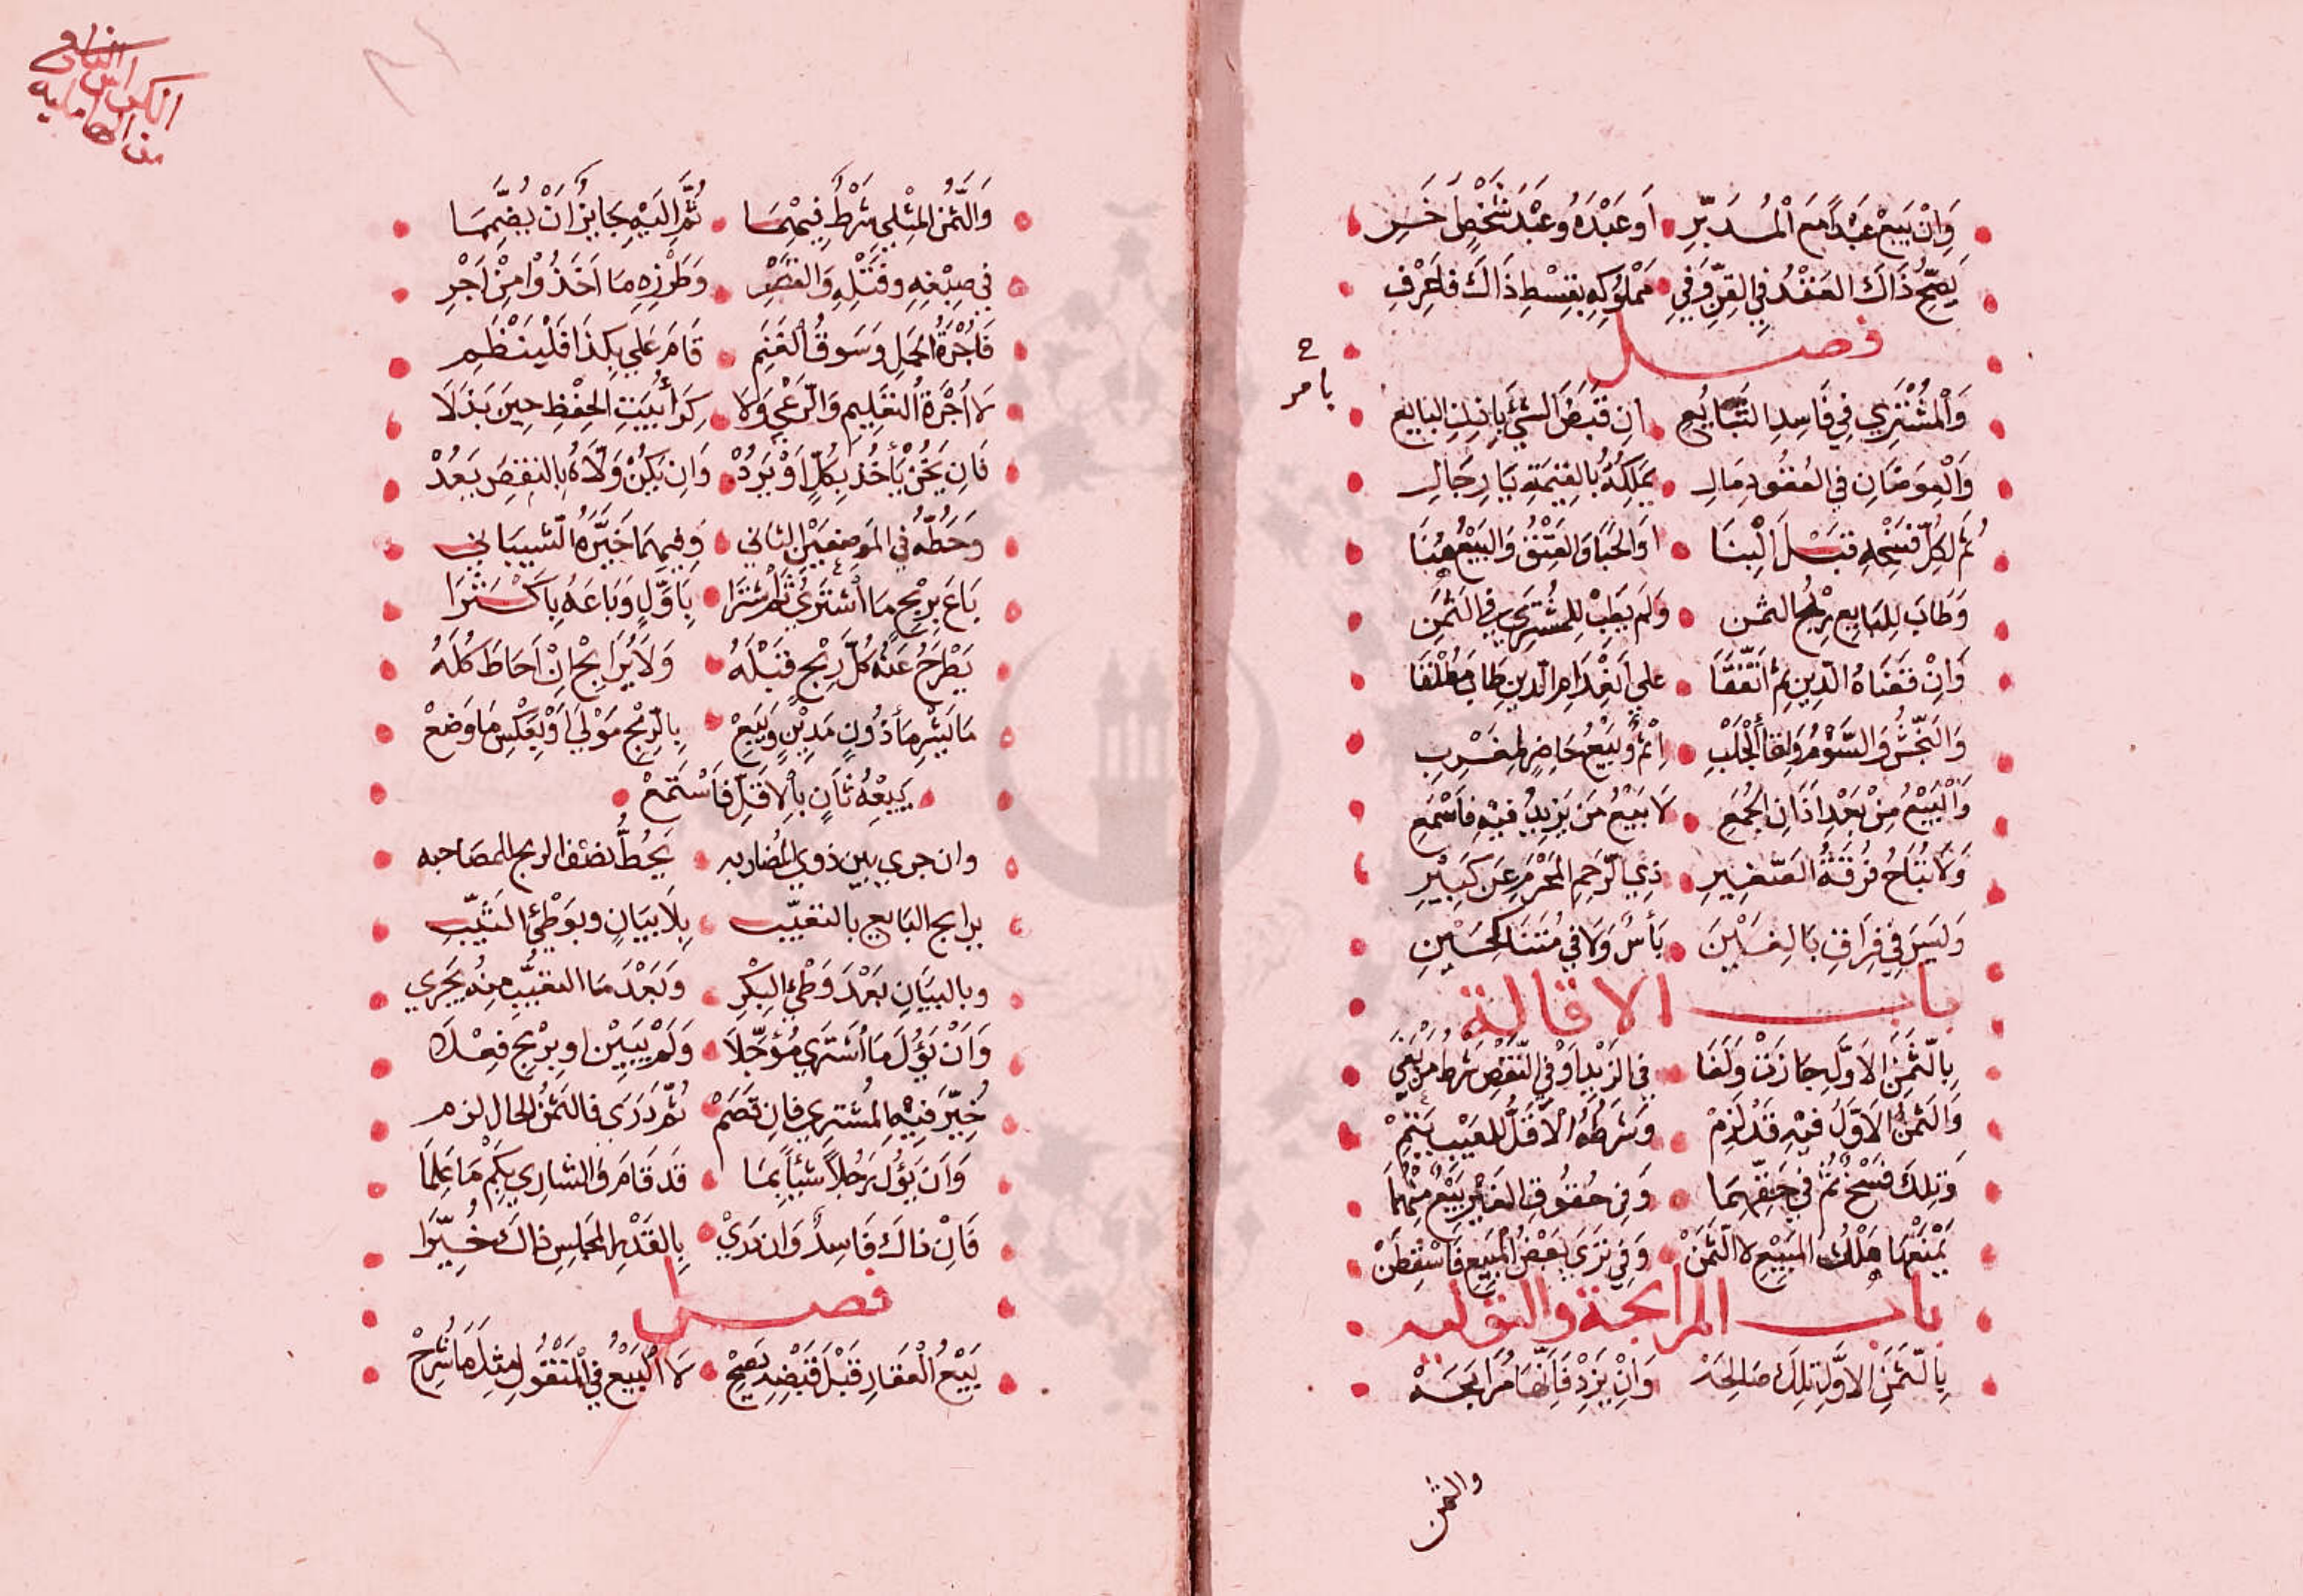 وَاِنْ يَبِعْ عَبْدًا مَعَ الْمُدَبَّرِ اَوعَبْدَهُ وعَبْدَ شَخْصٍ خَرِ
يَصِحُّ ذَاكَ العَقْدُ فِي القِنِّ وَفِي مَمْلُوكِهِ بِقِسْطِ ذَاكَ فَاعْرِفِ
فصل
وَالْمُشْتَرِي فِي فَاسِدِ التَّبَايُعِ اِن قَبَضَ الشَّيْءَ بِاِذنِ البَايِعِ
وَالْعِوَضَانِ فِي العُقُودِ مَالِ يَملِكُهُ بِالقِيمَةِ يَا رِجَالِ
ثُمَّ لِكُلٍّ فَسْخُهِ قَبْلَ الْبِنَا اَوِ الحَبَا وَالعِتْقُ وَالبَيْعُ هُنَا
وَطَابَ لِلبَايِعِ رِبْحُ الثمن وَلَم يَطِبْ لِلمُشْتَرِي فِي الثَّمَنِ
وَاِنْ قَضَاهُ الدَّينَ ثُمَّ اتَّفَقَا عَلَى انْعِدَامِ الدَّينِ طَابَ مُطْلَقَا
وَالنَّجْشُ وَالسَّوْمُ وَلِقَا الْجَلْبِ اِثْمٌ وَبَيْعُ حَاضِرٍ لِغَرِيبِ
وَالْبَيْعُ مِنْ بَعْدِ اَذَانِ الجُمَعِ لَا بَيْعُ مَن يَزِيدُ فِيهِ فَاسْمَعِ
وَلَا تُبَاحُ فُرقَةُ الصَّغِيرِ ذِي الرَّحِمِ المَحْرَمِ عَن كَبِيرِ
وَلَيسَ فِي فِرَاقِ بَالِغَيْنِ بَأسٌ وَلَا فِي مُتَنَاكِحَيْنِ
باب الاقالة
بِالثَّمَنِ الاَوَّلِ جَازَتْ وَلَغَا فِي الزَّيْدِ اَوْ فِي النَّقْصِ شَرْطُ مَنْ بَغَى
وَالثَّمَنُ الاَوَّلُ فِيهِ قَدْ لَزِمْ وَشَرطُهُ الاَقَلَّ للعَيْبِ يَتِمْ
وَتِلكَ فَسْخٌ ثَمَّ فِي حَقِّهِمَا وَفِي حُقُوقِ الغَيْرِ بَيْعٌ مِنْهُمَا
يَمْنَعُهَا هُلْكُ المَبِيعِ لَا الثَّمَنْ وَفِي تَرَى بَعْضُ المَبِيعِ فَاسْقِطَنْ
باب المرابحة والتوليه
بِالثَّمَنِ الاَوَّلِ تِلكَ صَالِحَهْ وَاِنْ يَزِدْ فَاِنَّهَا مُرَابَحَهْ
والثمن
الكراس الثاني
من الكامليه
وَالثَّمَنُ المِثْلِيُّ شَرْطٌ فِيهِمَا ثُمَّ اِلَيْهِ جَايِزٌ اَنْ يَضُمَّمَا
فِي صِبْغِهِ وفَتْلِهِ وَالقَصْرِ وَطَرْزِهِ مَا اَخَذُوْا مِنْ اَجْرِ
فَاُجْرَةُ الحَملِ وَسَوقُ الغَنَمِ قَامَ عَلَي بِكَذَا فَلْيَنْظِمِ
لَا اُجْرَةُ التَعلِيمِ وَالرَّعْيِ وَلَا كِرَاُ بَيتِ الحِفْظِ حِينَ بَذَلَا
فَاِن يَخُنْ يَأخُذ بِكُلٍّ اَوْ يَرُدْ وَاِن يَكُنْ وَلَّاهُ بِالنَقْصِ يَعُدْ
وَحَطُّهُ فِي المَوضِعَيْنِ الثاني وَفِيهِمَا خَيَّرَهُ الشَّيبَاني
بَاعَ بِرِبْحٍ مَا اشْتَرَي ثُمَّ اشْتَرَا بِاَوَّلٍ وَبَاعَهُ بِاَكْثَرَا
يَطْرَحُ عَنْهُ كُلَّ رِبْحٍ قَبْلَهُ وَلَا يُرَابِحْ اِنْ اَحَاطَ كُلَّهُ
مَا يَشْرِ مَأذُونٍ مَدِيْنٍ وَيَبِعْ بِالرِّبْحِ مَوْلَى اَوْ بِعَكْسِ مَا وَضَعْ
يَبِيْعُهُ ثَانٍ بِالاَقَلِّ فَاسْتَمِعْ
وان جري بين ذوي المضاربه يَحُطُّ نصف الربح للمصَاحبه
يرابح البَايع بالتعيّب بِلَا بيَانٍ وبوَطْئِ الثَيِّبِ
وبالبيَانِ بَعْدَ وَطْئِ البِكْرِ وَبَعْدَ مَا التعَيُّبُ مِنْهُ يَجْرِي
وَاَنْ يَؤُلَ مَا اشْتَرَي مُؤَجَّلَا وَلَمْ يُبَيِّنْ اوبِرِبْحٍ فَعَلَهْ
خُيِّرَ فِيْهِ المُشْتَرِي فاِن قَصَمْ ثُمَّ دَرَى فالثَمَنُ الحال لزم
وَاَن يَؤُل رَجُلاً شَيْأً بِمَا قَد قَامَ وَالشارِي بِكَمْ مَا عَلِمَا
فَاِنْ ذاكَ فَاسِدٌ وَان دَرَيْ بِالقَدْرِ المَجلِسِ ذاكَ خُيِّرَا
فصل
بَيْعُ الْعَقَارِ قَبْلَ قَبْضِهِ يَصِحْ لَا الْبَيْعُ فِي الْمَنْقُولِ مِثلَ مَا شُرِحْ